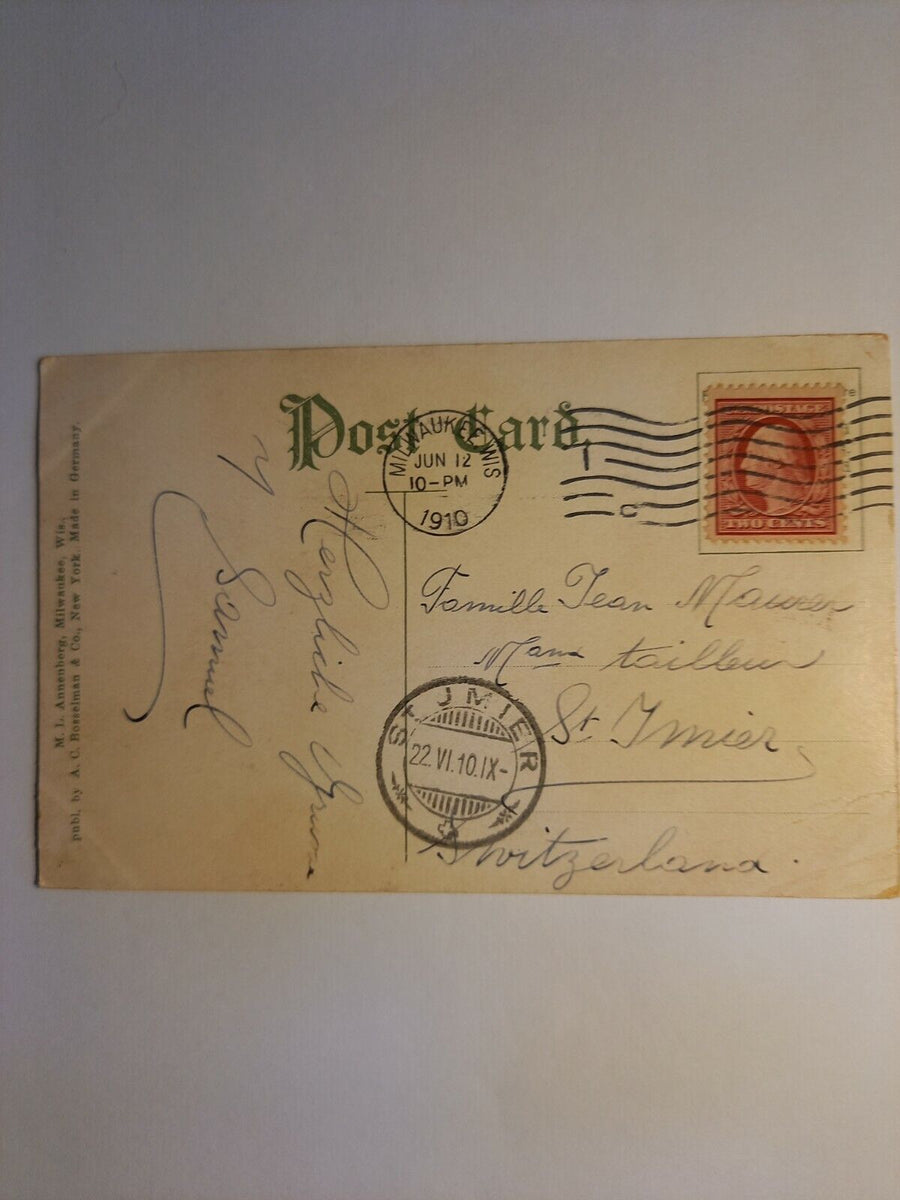 Post Card.
MILWAUKEE, WIS
JUN 12
10-PM
1910
POSTAGE
TWO CENTS
Famille Jean Maurer
Mand tailleur
St Imier
Switzerland.
ST. JMIER
22.VI.10.IX-
Herzliche Grüsse
Samuel
M. L. Annenberg, Milwaukee, Wis.,
publ. by A. C. Bosselman & Co., New York. Made in Germany.